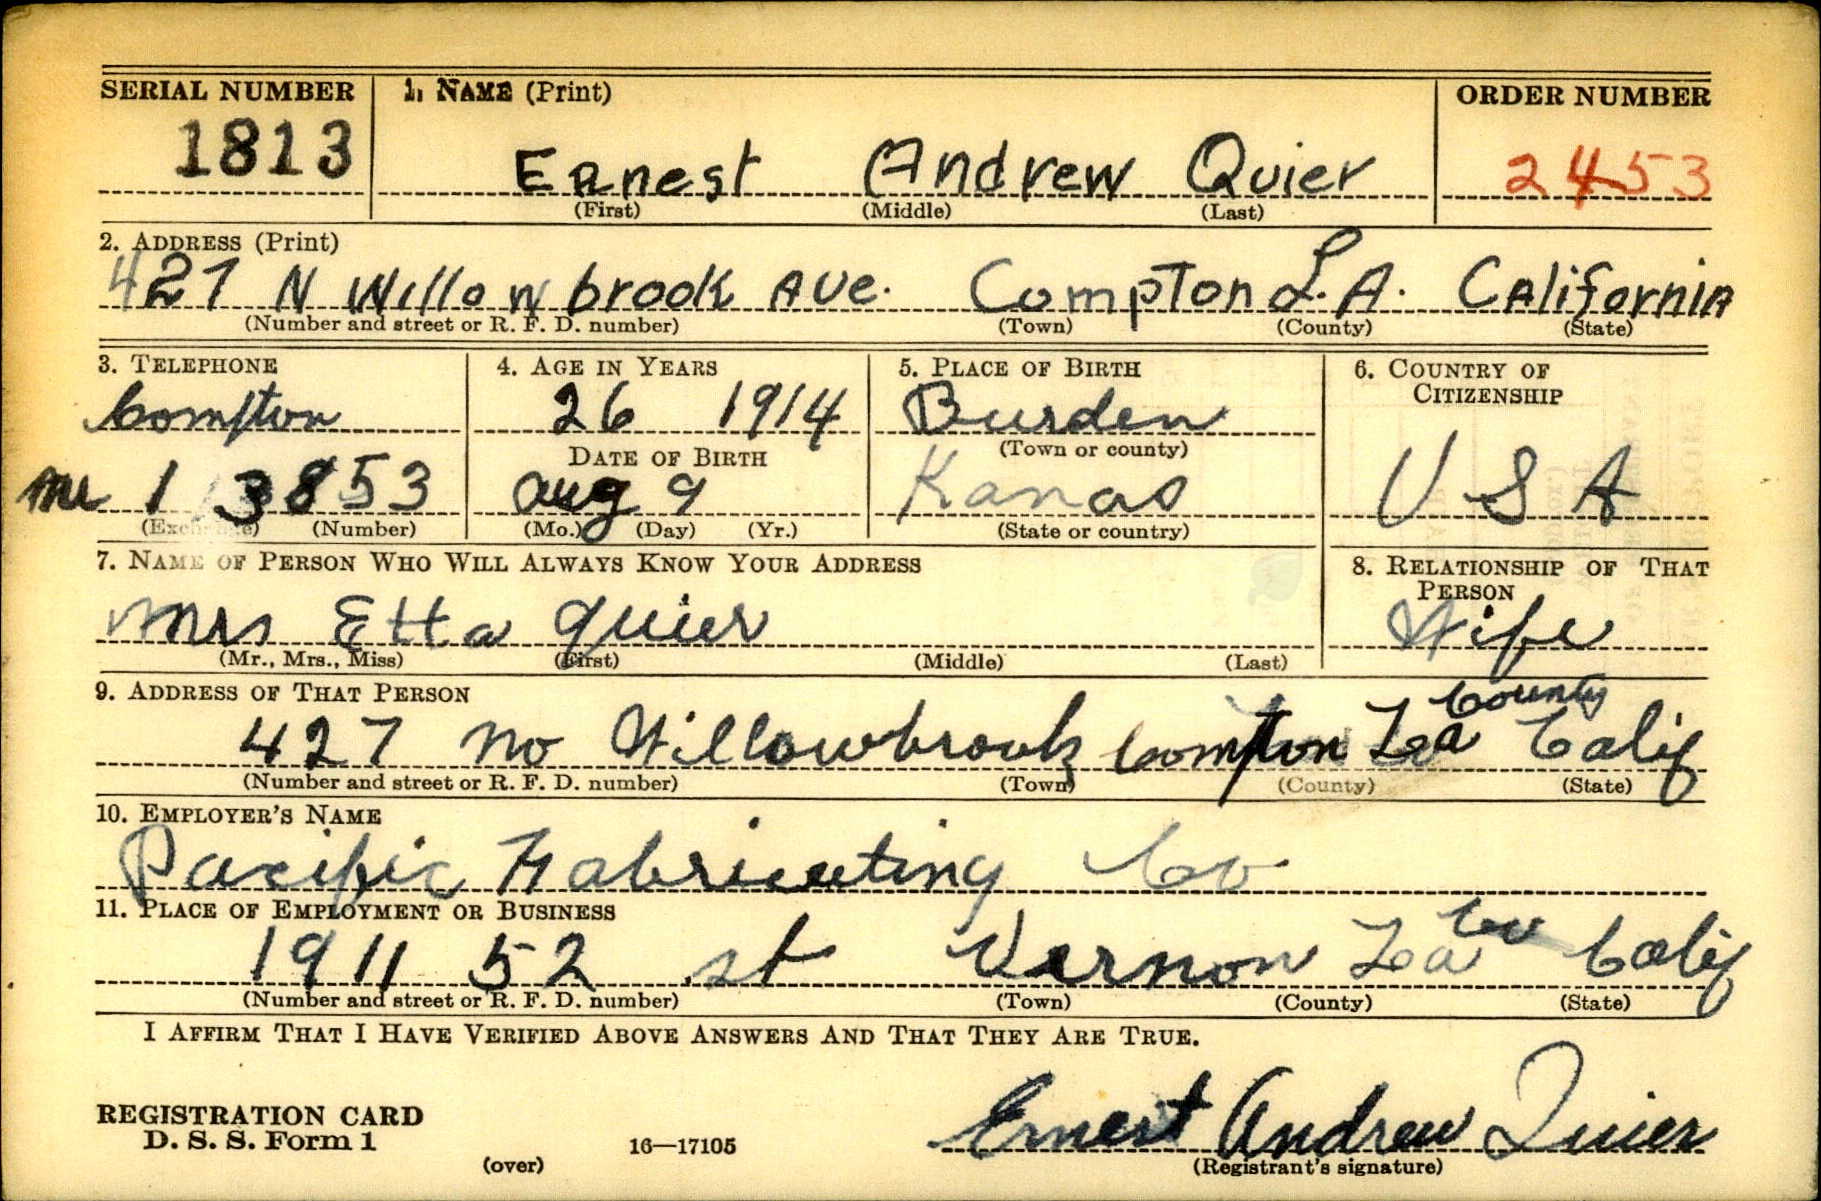 SERIAL NUMBER 1. NAME (Print) ORDER NUMBER
1813 Ernest Andrew Quier 2453
(First) (Middle) (Last)
2. ADDRESS (Print)
427 N Willowbrook Ave. Compton L.A. California
(Number and street or R. F. D. number) (Town) (County) (State)
3. TELEPHONE 4. AGE IN YEARS 5. PLACE OF BIRTH 6. COUNTRY OF CITIZENSHIP
Compton 26 1914 Burden
DATE OF BIRTH (Town or county)
1 3853 Aug 9 Kanas U S A
(Exchange) (Number) (Mo.) (Day) (Yr.) (State or country)
7. NAME OF PERSON WHO WILL ALWAYS KNOW YOUR ADDRESS 8. RELATIONSHIP OF THAT PERSON
Mrs Etta Quier Wife
(Mr., Mrs., Miss) (First) (Middle) (Last)
9. ADDRESS OF THAT PERSON
427 No Willowbrook Compton La County Calif
(Number and street or R. F. D. number) (Town) (County) (State)
10. EMPLOYER'S NAME
Pacific Fabricating Co
11. PLACE OF EMPLOYMENT OR BUSINESS
1911 52 st Vernon La Co Calif
(Number and street or R. F. D. number) (Town) (County) (State)
I AFFIRM THAT I HAVE VERIFIED ABOVE ANSWERS AND THAT THEY ARE TRUE.
REGISTRATION CARD
D. S. S. Form 1
(over) 16—17105
Ernest Andrew Quier
(Registrant's signature)